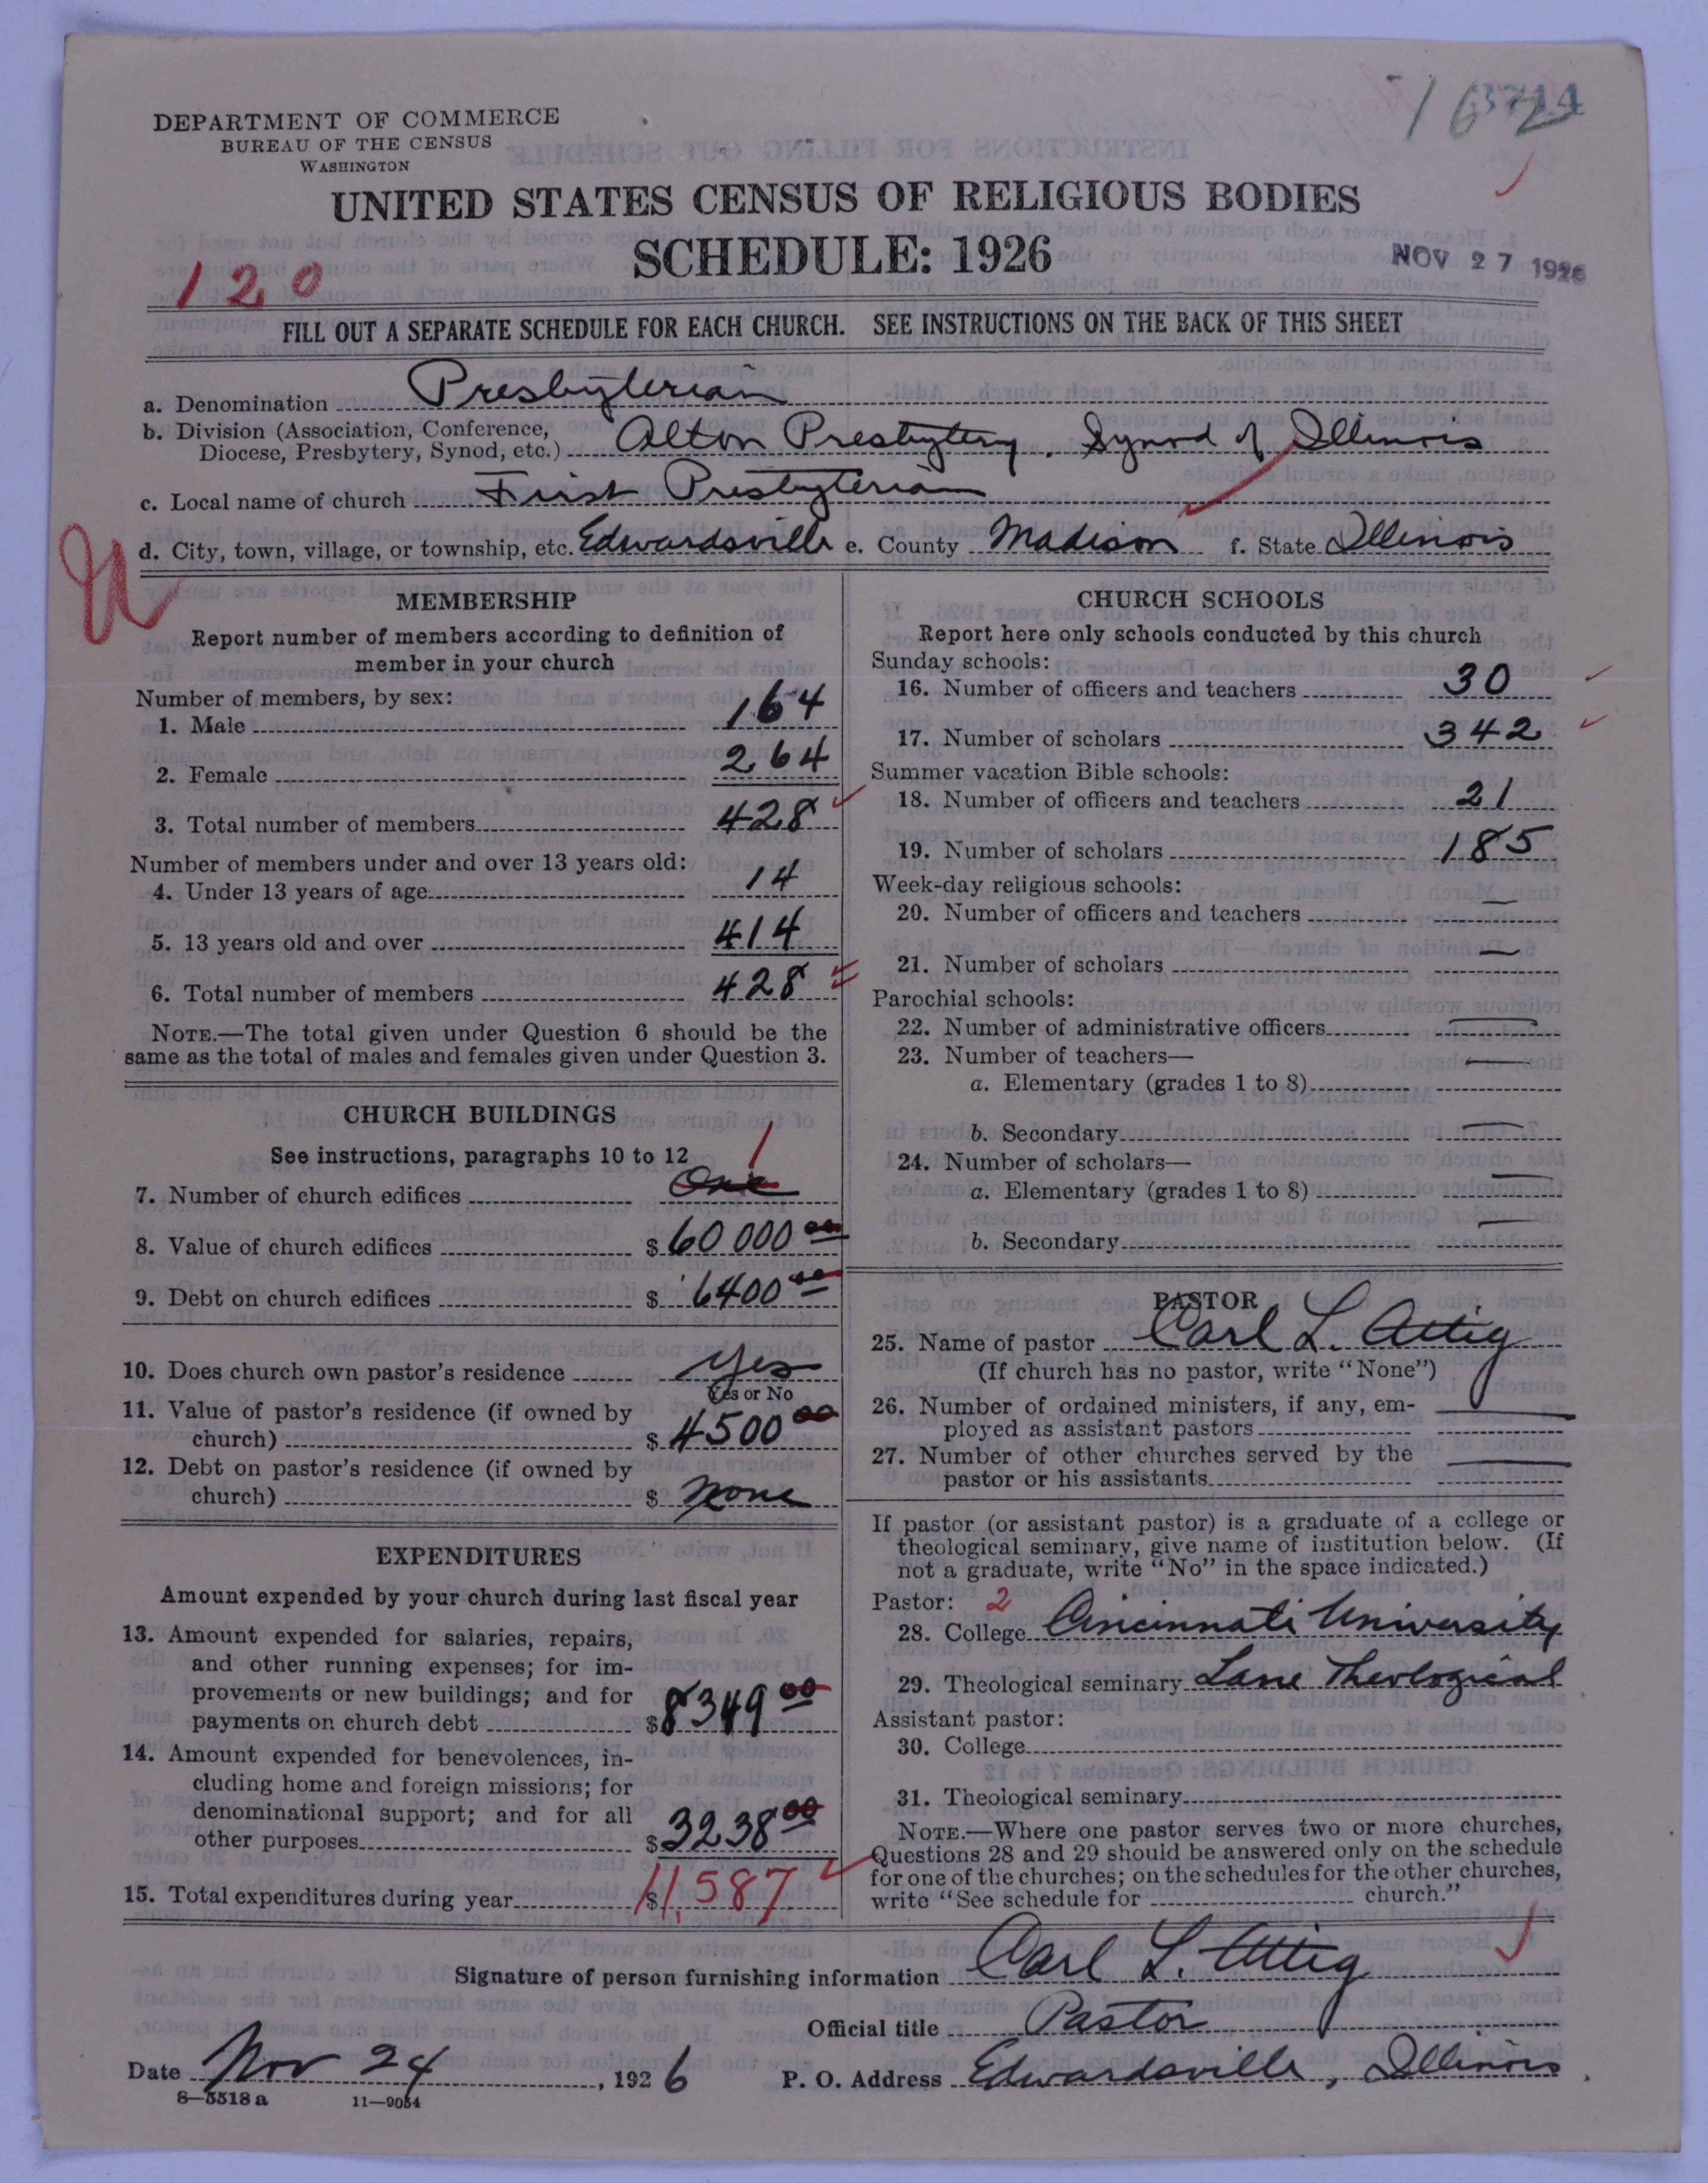 162
3714
DEPARTMENT OF COMMERCE
BUREAU OF THE CENSUS
WASHINGTON
UNITED STATES CENSUS OF RELIGIOUS BODIES
SCHEDULE: 1926
NOV 27 1926
120
FILL OUT A SEPARATE SCHEDULE FOR EACH CHURCH. SEE INSTRUCTIONS ON THE BACK OF THIS SHEET
a. Denomination Presbyterian
b. Division (Association, Conference,
Diocese, Presbytery, Synod, etc.) Alton Presbytery, Synod of Illinois
c. Local name of church First Presbyterian
d. City, town, village, or township, etc. Edwardsville e. County Madison f. State Illinois
MEMBERSHIP
Report number of members according to definition of
member in your church
Number of members, by sex:
1. Male 164
2. Female 264
3. Total number of members 428
Number of members under and over 13 years old:
4. Under 13 years of age 14
5. 13 years old and over 414
6. Total number of members 428
NOTE.—The total given under Question 6 should be the
same as the total of males and females given under Question 3.
CHURCH BUILDINGS
See instructions, paragraphs 10 to 12
1
7. Number of church edifices One
8. Value of church edifices $60 000 00
9. Debt on church edifices $6400 00
10. Does church own pastor's residence Yes
Yes or No
11. Value of pastor's residence (if owned by
church) $4500 00
12. Debt on pastor's residence (if owned by
church) $ None
EXPENDITURES
Amount expended by your church during last fiscal year
13. Amount expended for salaries, repairs,
and other running expenses; for im-
provements or new buildings; and for
payments on church debt $8349 00
14. Amount expended for benevolences, in-
cluding home and foreign missions; for
denominational support; and for all
other purposes $3238 00
15. Total expenditures during year $11,587
CHURCH SCHOOLS
Report here only schools conducted by this church
Sunday schools:
16. Number of officers and teachers 30
17. Number of scholars 342
Summer vacation Bible schools:
18. Number of officers and teachers 21
19. Number of scholars 185
Week-day religious schools:
20. Number of officers and teachers —
21. Number of scholars —
Parochial schools:
22. Number of administrative officers —
23. Number of teachers—
a. Elementary (grades 1 to 8) —
b. Secondary —
24. Number of scholars—
a. Elementary (grades 1 to 8) —
b. Secondary —
PASTOR
25. Name of pastor Carl L. Attig
(If church has no pastor, write "None")
26. Number of ordained ministers, if any, em-
ployed as assistant pastors —
27. Number of other churches served by the
pastor or his assistants —
If pastor (or assistant pastor) is a graduate of a college or
theological seminary, give name of institution below. (If
not a graduate, write "No" in the space indicated.)
Pastor: 2
28. College Cincinnati University
29. Theological seminary Lane Theological
Assistant pastor:
30. College
31. Theological seminary
NOTE.—Where one pastor serves two or more churches,
Questions 28 and 29 should be answered only on the schedule
for one of the churches; on the schedules for the other churches,
write "See schedule for church."
Signature of person furnishing information Carl L. Attig
Official title Pastor
Date Nov 24, 1926 P. O. Address Edwardsville, Illinois.
8—5518 a 11—9054